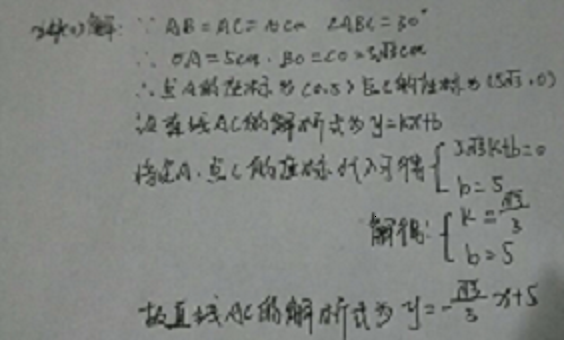 解: ∵ AB=AC=10cm ∠ABC=30°
∴ OA=5cm, BO=CO=5√3cm
∴点A的坐标为(0,5)点C的坐标为(5√3,0)
设直线AC的解析式为y=kx+b
将点A、点C的坐标代入可得{5√3k+b=0
b=5
解得:{k=-√3/3
b=5
故直线AC的解析式为y=-√3/3 x+5